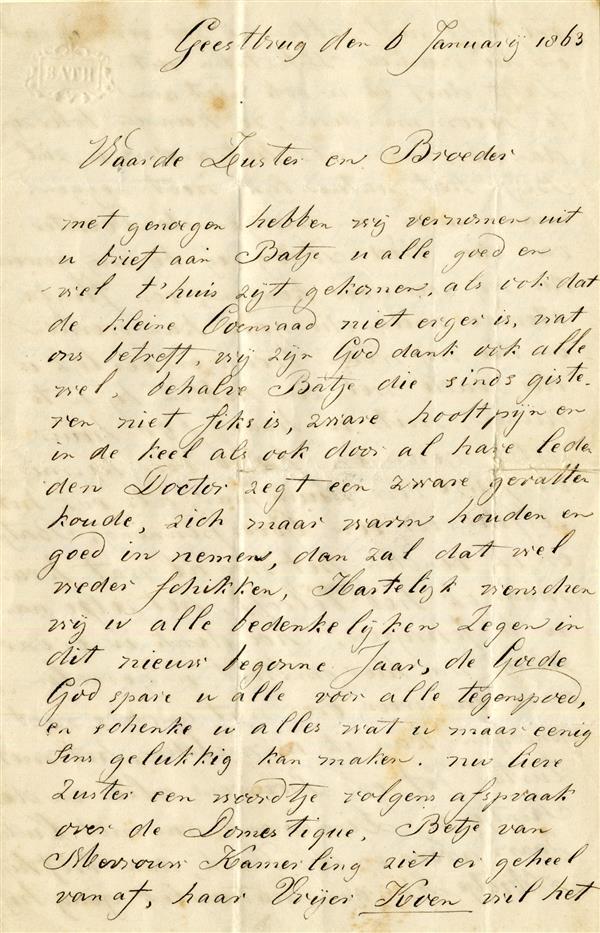 BATH
Geestbrug den 6 Januarij 1863
Waarde Zuster en Broeder
met genoegen hebben wij vernomen uit
u brief aan Batje u alle goed en
wel t'huis zijt gekomen, als ook dat
de kleine Coenraad niet erger is, wat
ons betreft, wij zijn God dank ook alle
wel, behalve Batje die sinds giste-
ren niet fiks is, zware hooftpijn en
in de keel als ook door al hare lede
den Doctor zegt een zware gevatte
koude, zich maar warm houden en
goed in nemen, dan zal dat wel
weder schikken, Hartelijk wenschen
wij u alle bedenkelijken Zegen in
dit nieuw begonne Jaar, de Goede
God spare u alle voor alle tegenspoed,
en schenke u alles wat u maar eenig
sins gelukkig kan maken. nu lieve
Zuster een woordtje volgens afspraak
over de Domestique, Betje van
Mevrouw Kamerling ziet er geheel
van af, haar Vrijer Koen wil het